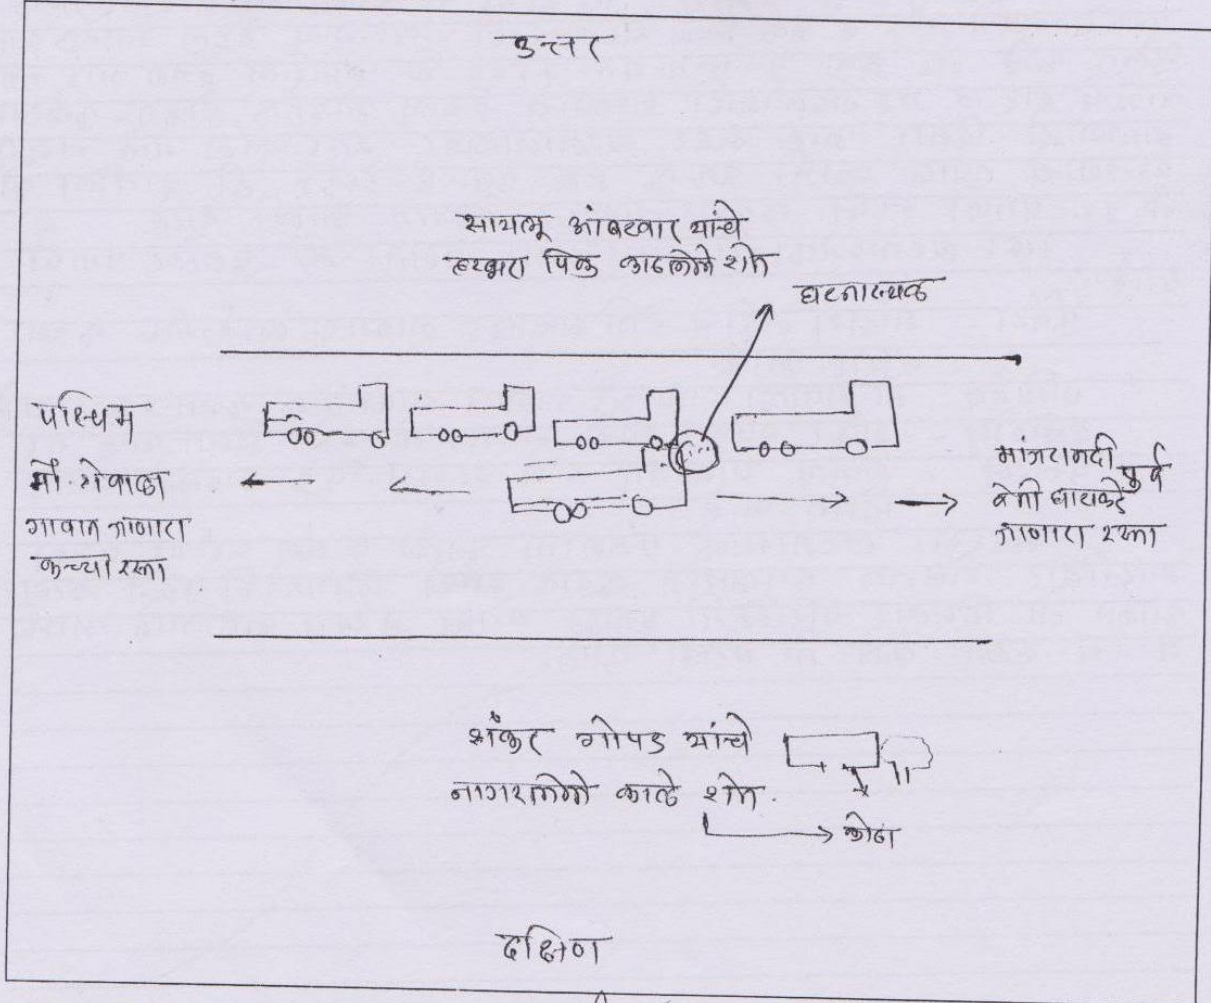 उत्तर
सायलू आंबटवार यांचे
हरभरा पिक काढलेले शेत
घटनास्थळ
पश्चिम
मौ. शेवाळा
गावात जाणारा
कच्चा रस्ता
मांजरा नदी
पुर्व
जाणारा रस्ता
शंकर गोपड यांचे
नागरलेले काळे शेत.
कोठा
दक्षिण